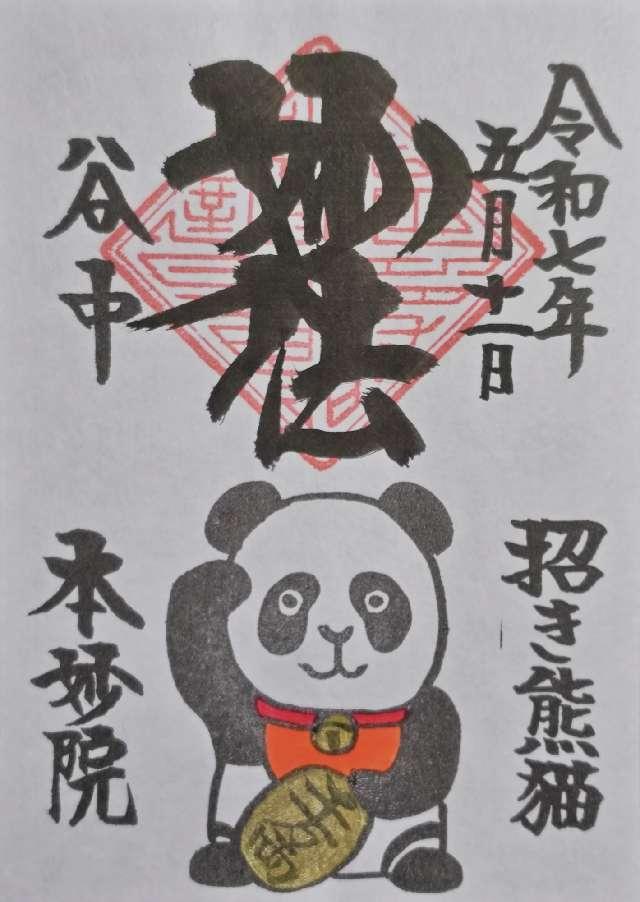 令和七年
五月十一日
妙法
谷中
招き熊猫
本妙院